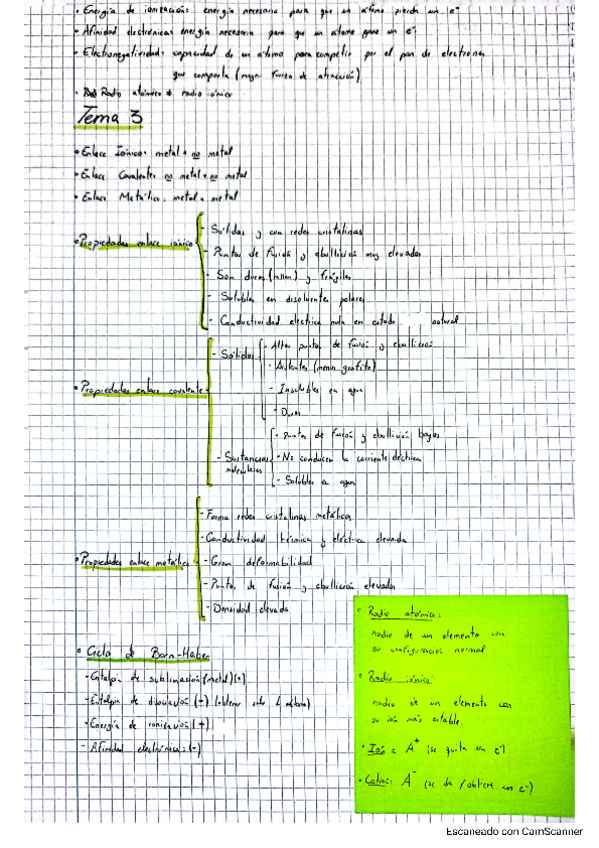 • Energía de ionización: energía necesaria para que un átomo pierda un e⁻
• Afinidad electrónica: energía necesaria para que un átomo gane un e⁻
• Electronegatividad: capacidad de un átomo para competir por el par de electrones
que comparta (mayor fuerza de atracción)
• Radio atómico ≠ radio iónico
Tema 3
• Enlace Iónico: metal + no metal
• Enlace Covalente: no metal + no metal
• Enlace Metálico: metal + metal
• Propiedades enlace iónico
- Sólidos y con redes cristalinas
- Puntos de fusión y ebullición muy elevados
- Son duros (rallan) y frágiles
- Solubles en disolventes polares
- Conductividad electrica nula en estado natural
• Propiedades enlace covalente
- Sólidos
- Altos puntos de fusión y ebullición
- Aislantes (menos grafito)
- Insolubles en agua
- Duros
- Sustancias moleculares
- Puntos de fusión y ebullición bajos
- No conducen la corriente eléctrica
- Solubles en agua
• Propiedades enlace metálico
- Forma redes cristalinas metálicas
- Conductividad térmica y eléctrica elevada
- Gran deformabilidad
- Puntos de fusión y ebullición elevados
- Densidad elevada
• Ciclo de Born-Haber
- Entalpía de sublimación (metal) (+)
- Entalpía de disociación (+) (obtener solo 1 átomo)
- Energía de ionización (+)
- Afinidad electrónica: (-)
• Radio atómico:
radio de un elemento con
su configuración normal
• Radio iónico:
radio de un elemento con
su ión más estable.
• Ión = A⁺ (se quita un e⁻)
• Catión: A⁻ (se da / obtiene un e⁻)
Escaneado con CamScanner